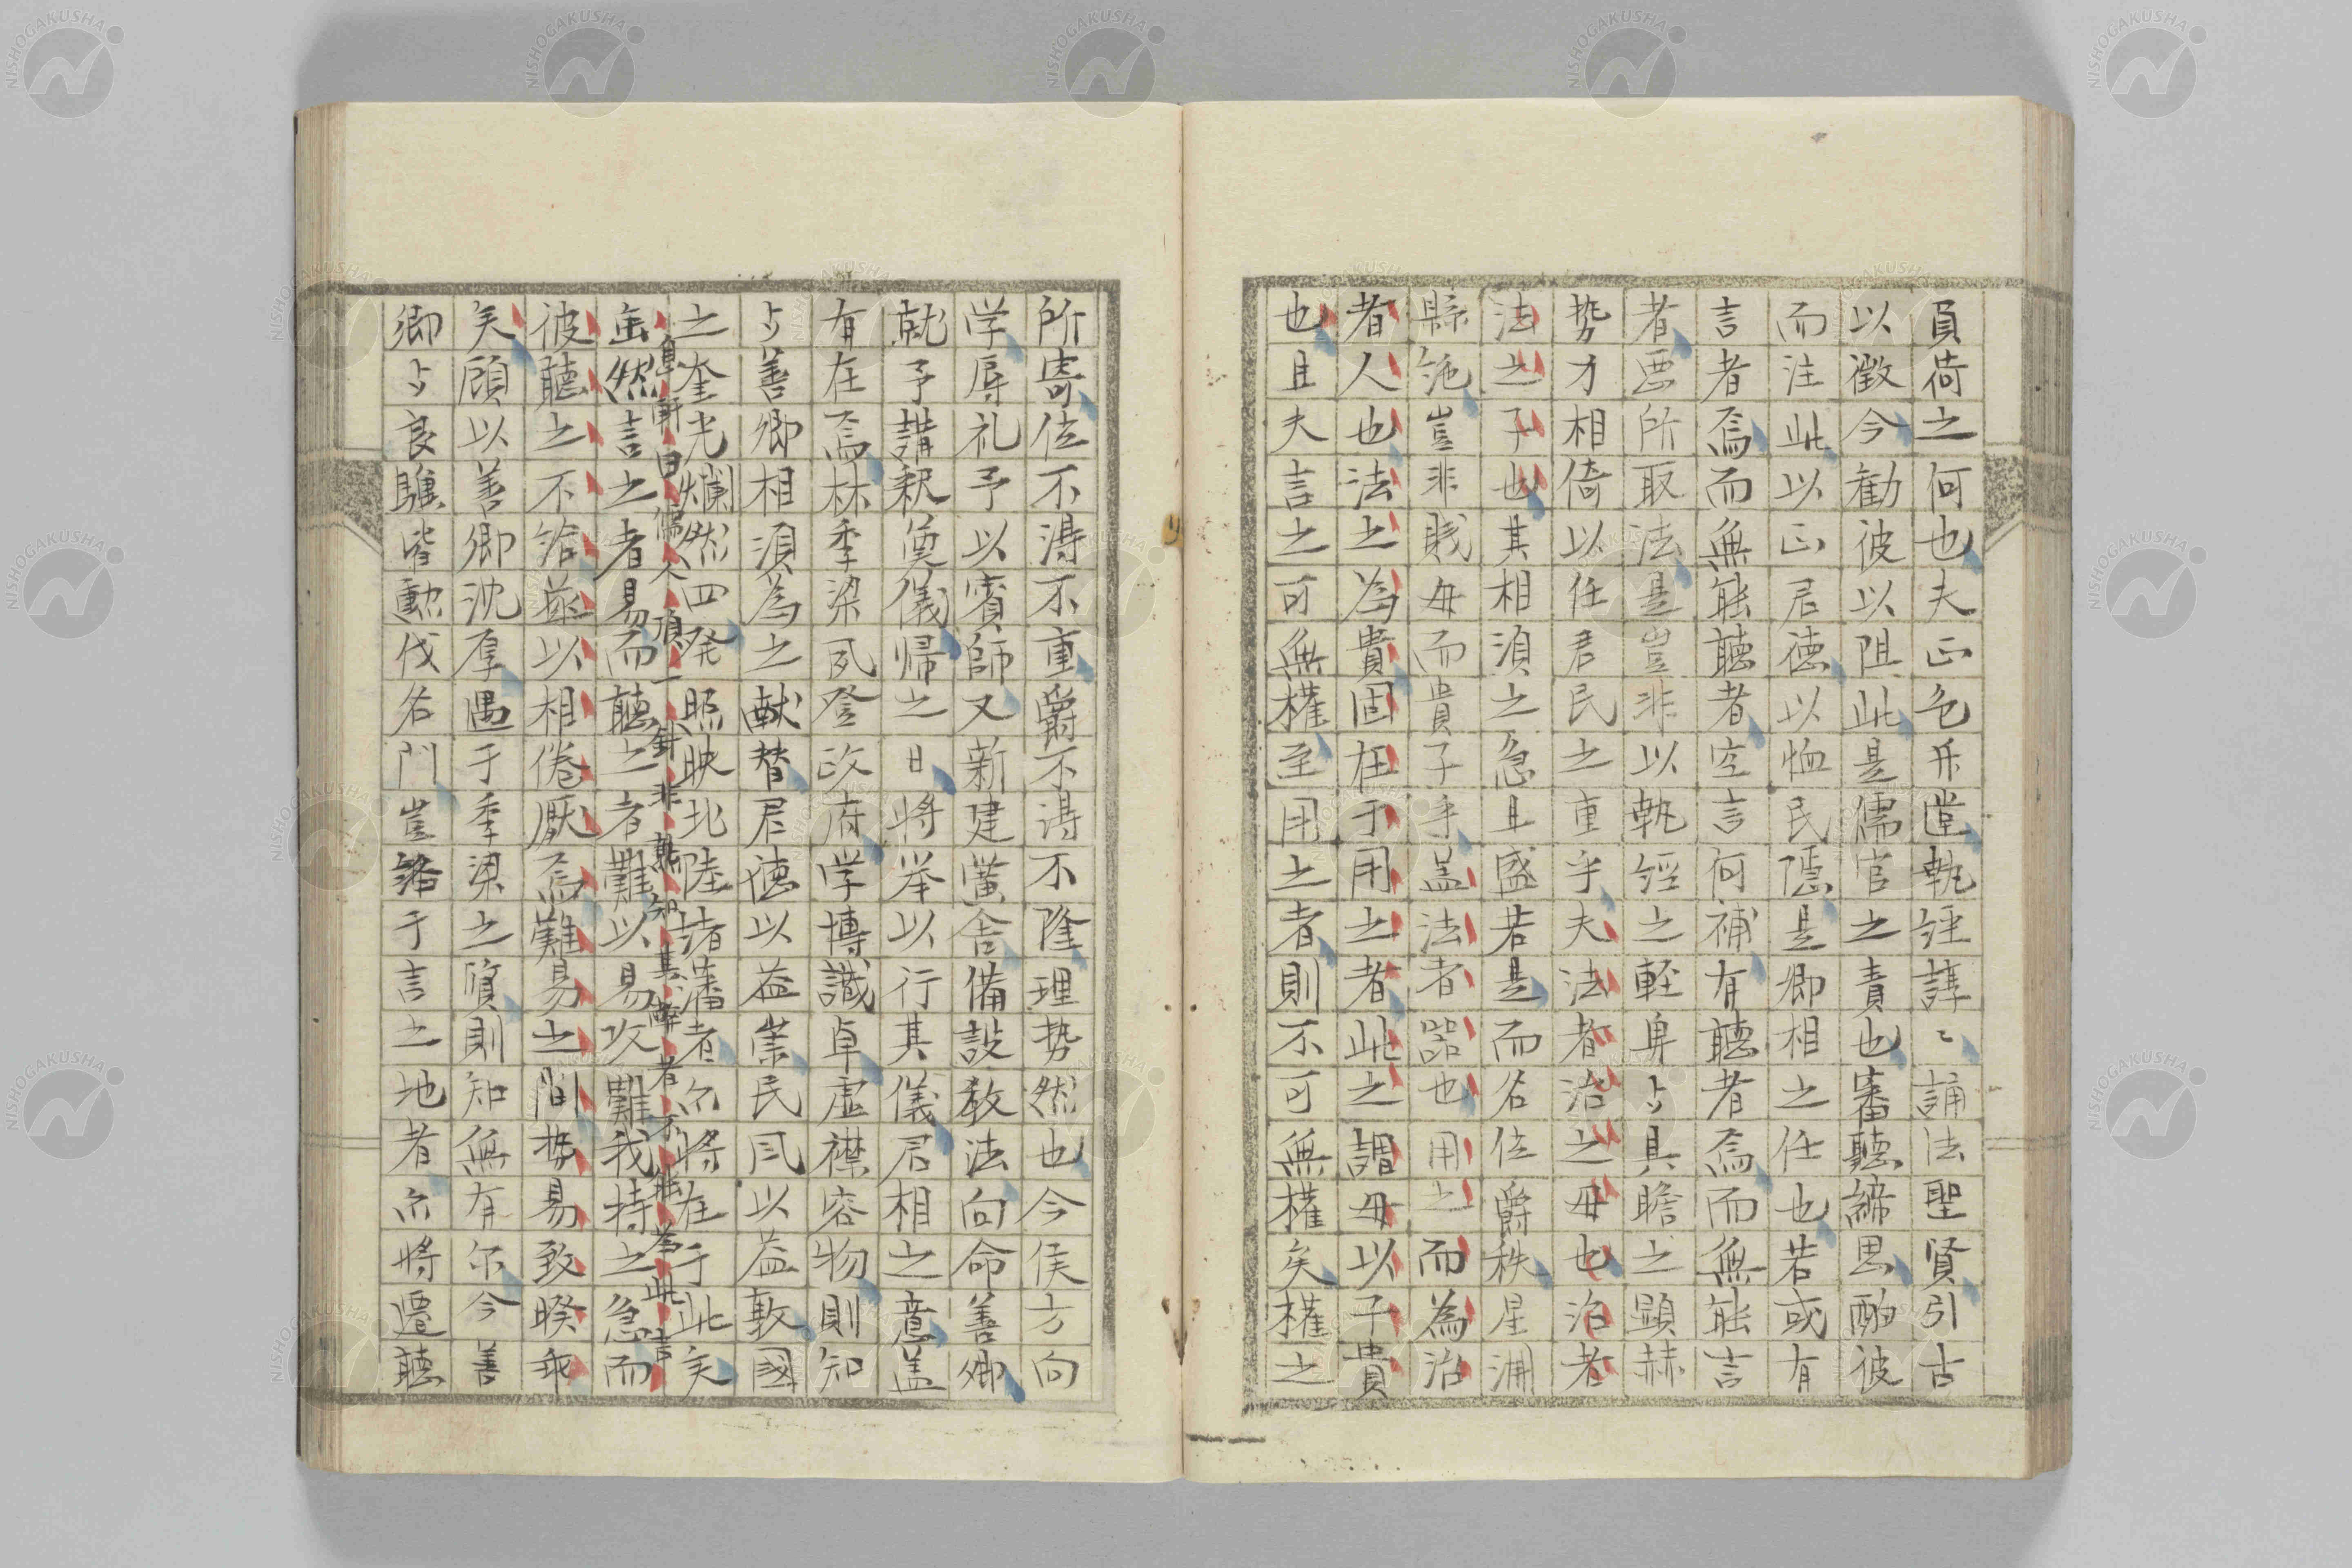 員荷之何也夫正色升筵執経諄〻誦法聖賢引古
以徴今勧彼以阻此是儒官之責也審聴締思酌彼
而注此以正君徳以恤民隠是卿相之任也若或有
言者焉而無能聴者空言何補有聴者焉而無能言
者悪所取法是豈非以執経之軽身与具瞻之顕赫
勢才相倚以任君民之重乎夫法者治之母也治者
法之子也其相須之急且盛若是而名位爵秩星淵
縣絶豈非賎母而貴子乎盖法者器也用之而為治
者人也法之為貴固在于用之者此之謂母以子貴
也且夫言之可無権至用之者則不可無権矣権之
所寄位不得不重爵不得不隆理勢然也今侯方向
学辱礼予以賓師又新建黌舎備設教法向命善卿
就予講釈奠儀帰之日将举以行其儀君相之意盖
有在焉林季梁夙登政府学博識卓虚襟容物則知
与善卿相須為之献替君徳以益崇民風以益敦國
之奎光爛然四発照映北陸諸藩者尓将在于此矣
阜軒曰儒人頂一針非熟知其弊者不能為此言
虽然言之者易而聴之者難以易攻難我持之急而
彼聴之不給遂以相倦厭焉難易之間勢易致睽乖
矣顧以善卿沈厚遇于季梁之質則知無有尓今善
卿与良驥皆勲伐名門豈諮于言之地者尓将遷聴
NISHOGAKUSHA